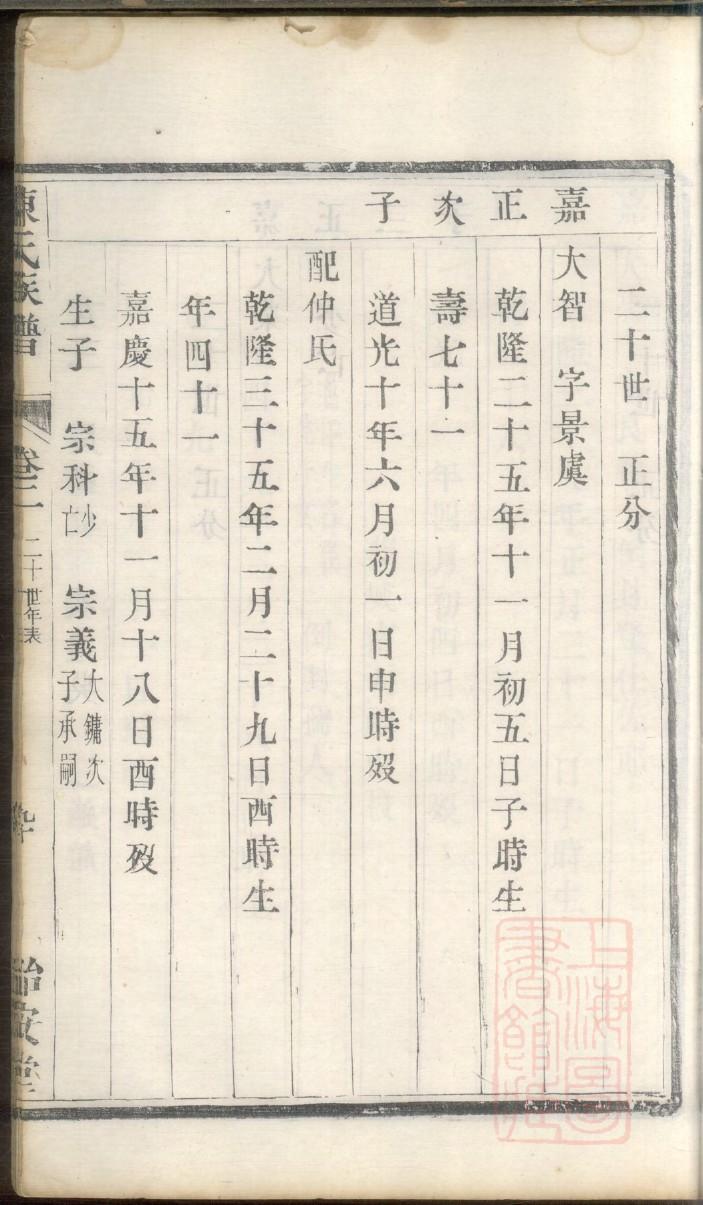 二十世 正分
嘉正次子
大智 字景虞
乾隆二十五年十一月初五日子時生
壽七十一
道光十年六月初一日申時歿
配仲氏
乾隆三十五年二月二十九日酉時生
年四十一
嘉慶十五年十一月十八日酉時歿
生子 宗科少亡 宗義大鏞次子承嗣
陳氏族譜 卷二 二十世年表
上海圖書館藏